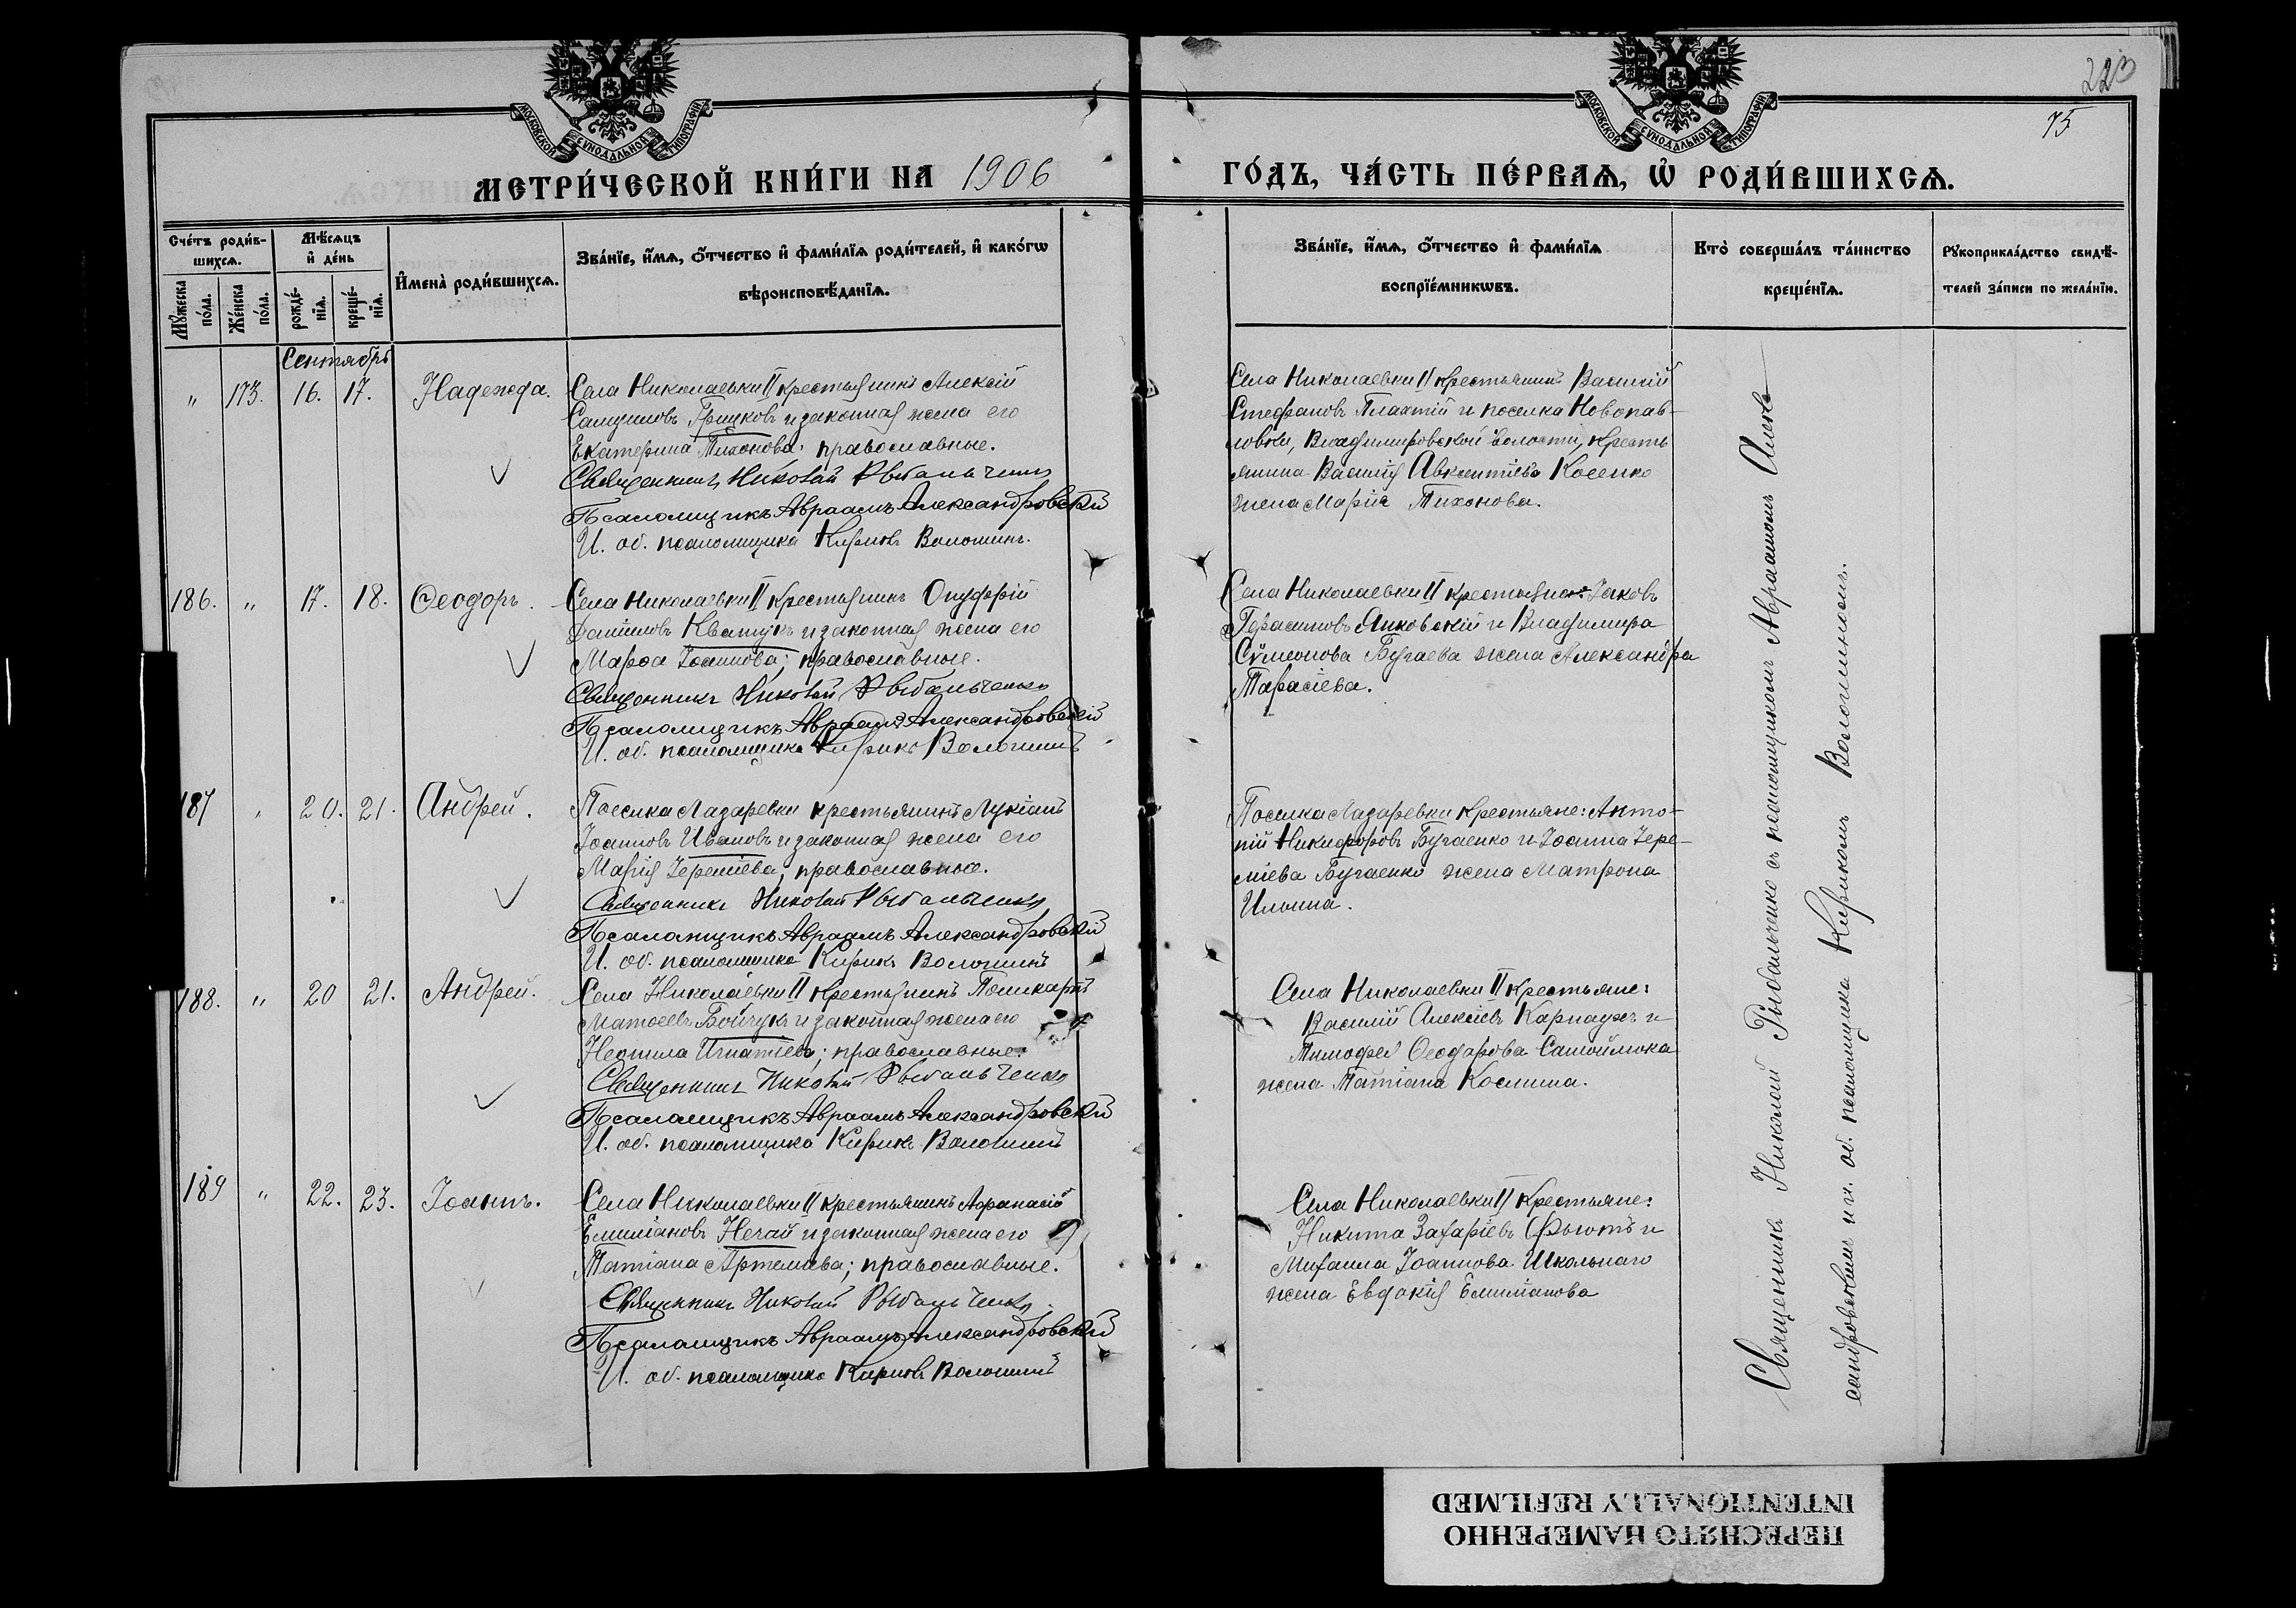 223
75
МОСКОВСКОЙ СѴНОДАЛЬНОЙ ТИПОГРАФІИ
МОСКОВСКОЙ СѴНОДАЛЬНОЙ ТИПОГРАФІИ
МЕТРИ́ЧЕСКОЙ КНИ́ГИ НА 1906
ГО́ДЪ, ЧА́СТЬ ПЕ́РВАѦ, Ѽ РОДИ́ВШИХСѦ.
Сче́тъ роди́в-
шихсѧ.
Мꙋ́жеска по́ла.
Же́нска по́ла.
Мѣ́сѧцъ
и҆ де́нь
рожде́-нїѧ.
креще́-нїѧ.
И҆мена̀ роди́вшихсѧ.
Зва́нїе, и҆́мѧ, ѻ҆́тчество и҆ фами́лїѧ роди́телей, и҆ како́гѡ
вѣроисповѣ́данїѧ.
Зва́нїе, и҆́мѧ, ѻ҆́тчество и҆ фами́лїѧ
воспрїе́мникѡвъ.
Кто̀ соверша́лъ та́инство
креще́нїѧ.
Рꙋкоприкла́дство свидѣ́-
телей за́писи по жела́нїю.
Сентябрь
" 173. 16. 17. Надежда.
Села Николаевки II крестьянинъ Алексій
Самуиловъ Грицковъ и законная жена его
Екатерина Тихонова; православные.
Священникъ Николай Рыбальченко
Псаломщикъ Авраамъ Александровскій
И. об. псаломщика Кирикъ Волошинъ.
Села Николаевки II крестьянинъ Василій
Стефановъ Плахтій и поселка Новопав-
ловки, Владимировской волости, кресть
янина Василія Авксентіева Косенко
жена Марія Тихонова.
186. " 17. 18. Ѳеодоръ.
Села Николаевки II крестьянинъ Онуфрій
Даніиловъ Квашукъ и законная жена его
Марѳа Іоаннова; православные.
Священникъ Николай Рыбальченко
Псаломщикъ Авраамъ Александровскій
И. об. псаломщика Кирикъ Волошинъ
Села Николаевки II крестьяне: Іаковъ
Герасимовъ Янковскій и Владимира
Сѵмеонова Бугаева жена Александра
Тарасіева.
187 " 20. 21. Андрей.
Поселка Лазаревки крестьянинъ Лукіанъ
Іоанновъ Ивановъ и законная жена его
Марія Іереміева; православные.
Священникъ Николай Рыбальченко
Псаломщикъ Авраамъ Александровскій
И. об. псаломщика Кирикъ Волошинъ
Поселка Лазаревки крестьяне: Анто-
ній Никифоровъ Бугаенко и Іоанна Іере-
міева Бугаенко жена Матрона
Ильина.
188. " 20 21. Андрей.
Села Николаевки II крестьянинъ Поликарпъ
Матѳеевъ Бойчукъ и законная жена его
Неонила Игнатіева; православные.
Священникъ Николай Рыбальченко
Псаломщикъ Авраамъ Александровскій
И. об. псаломщика Кирикъ Волошинъ
Села Николаевки II крестьяне:
Василій Алексіевъ Карнаухъ и
Тимоѳея Ѳеодорова Самойлюка
жена Татіана Космина.
189 " 22. 23. Іоаннъ.
Села Николаевки II крестьянинъ Аѳанасій
Емиліановъ Нечай и законная жена его
Татіана Артеміева; православные.
Священникъ Николай Рыбальченко
Псаломщикъ Авраамъ Александровскій
И. об. псаломщика Кирикъ Волошинъ
Села Николаевки II крестьяне:
Никита Захаріевъ и
Михаила Іоаннова Школьнаго
жена Евдокія Емиліанова
Священникъ Николай Рыбальченко съ псаломщикомъ Авраамомъ Алек
сандровскимъ и и. об. псаломщика Кирикомъ Волошинымъ.
ПЕРЕСНЯТО НАМЕРЕННО
INTENTIONALLY REFILMED